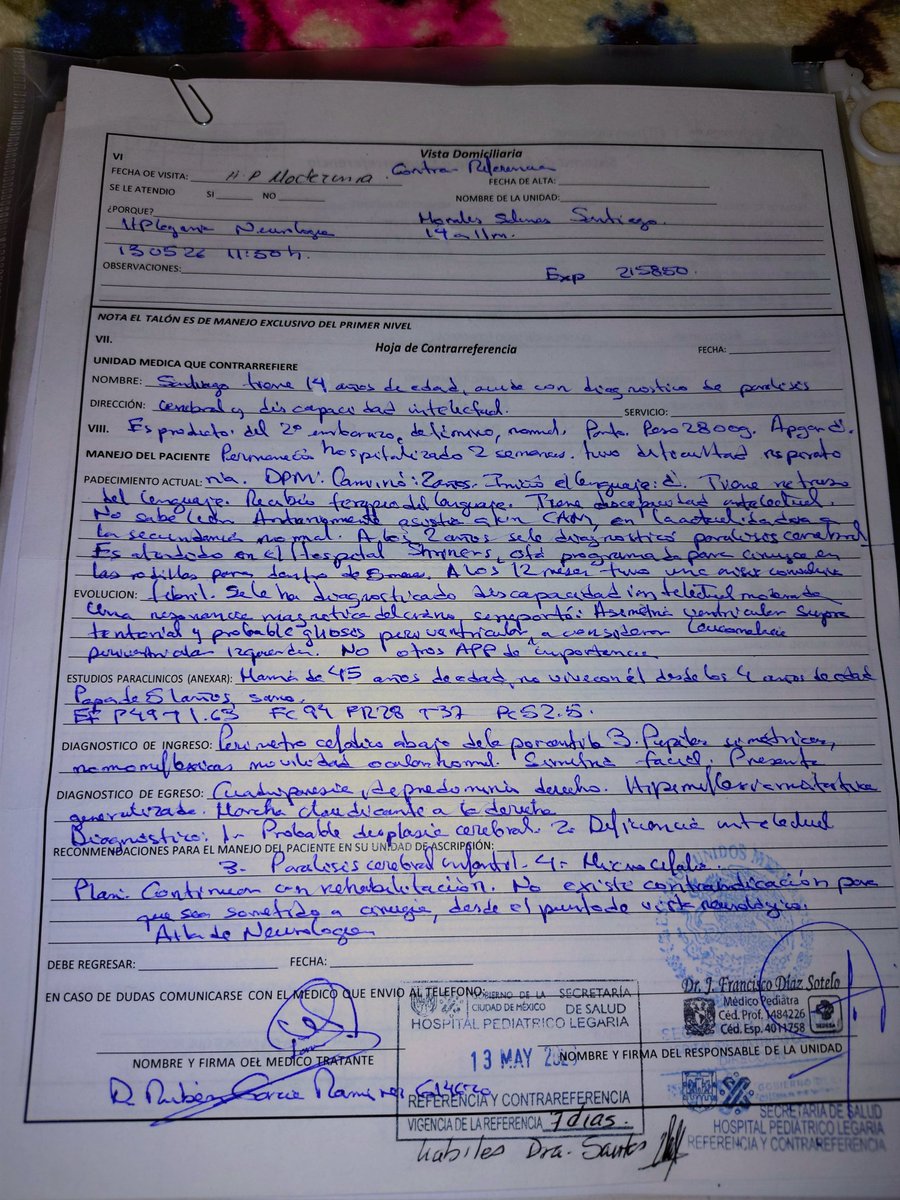 Vista Domiciliaria
VI
FECHA DE VISITA: H.P Moctezuma. Contra-Referencia FECHA DE ALTA:
SE LE ATENDIO SI NO NOMBRE DE LA UNIDAD:
¿PORQUE? Morales Salinas Santiago.
HPLegaria Neurologia 14 a 11m.
130526 11:50h.
OBSERVACIONES: Exp 215850.
NOTA EL TALÓN ES DE MANEJO EXCLUSIVO DEL PRIMER NIVEL
VII. Hoja de Contrarreferencia FECHA:
UNIDAD MEDICA QUE CONTRARREFIERE
NOMBRE: Santiago tiene 14 años de edad, acude con diagnostico de paralisis
DIRECCIÓN: cerebral y discapacidad intelectual. SERVICIO:
VIII. Es producto del 2º embarazo, de término, normal. Parto. Peso 2800g. Apgar
MANEJO DEL PACIENTE Permaneció hospitalizado 2 semanas. tuvo dificultad respirato
PADECIMIENTO ACTUAL: ria. DPM: Caminó: 2años. Inició el lenguaje: Tiene retraso
del lenguaje. Recibió terapia del lenguaje. Tiene discapacidad intelectual.
No sabe leer. Antriormente asistia a un CAM, en la actualidad va a
la secundaria normal. A los 2 años se le diagnosticó paralisis cerebral
Es atendido en el Hospital Shriners, programada para cirugia en
las rodillas para dentro de meses. A los 12 meses tuvo una crisis convulsiva
EVOLUCION: febril. Se le ha diagnosticado discapacidad intelectual moderada
Una resonancia magnetica del craneo reportó: Asimetria ventricular supra
tentorial y probable gliosis periventricular, a considerar leucomalacia
periventricular izquierda. No otros APP de importancia
ESTUDIOS PARACLINICOS (ANEXAR): Mamá de 45 años de edad, no vive con él desde los 4 años de edad
Papa de 51 años, sano.
EF P49 T1.63 FC 94 FR28 T37 Pc 52.5.
DIAGNOSTICO DE INGRESO: Perimetro cefalico abajo de la porcentila 3. Pupilas simétricas,
normorreflexicas movilidad ocular normal. Simetria facial. Presenta
DIAGNOSTICO DE EGRESO: Cuadriparesia, de predominio derecho. Hiperreflexia
generalizada. Marcha claudicante a la derecha
Diagnóstico: 1- Probable displasia cerebral. 2- Deficiencia intelectual
RECOMENDACIONES PARA EL MANEJO DEL PACIENTE EN SU UNIDAD DE ASCRIPCIÓN:
3- Paralisis cerebral infantil. 4- Microcefalia.
Plan. Continuar con rehabilitación. No existe contraindicación para
que sea sometido a cirugia, desde el punto de vista neurológico.
Alta de Neurologia
DEBE REGRESAR: FECHA:
EN CASO DE DUDAS COMUNICARSE CON EL MEDICO QUE ENVIO AL TELEFONO:
Dr. J. Francisco Díaz Sotelo
Médico Pediatra
Céd. Prof. 1484226
Céd. Esp. 4011758
SEDESA
GOBIERNO DE LA CIUDAD DE MÉXICO
SECRETARÍA DE SALUD
HOSPITAL PEDIATRICO LEGARIA
13 MAY
NOMBRE Y FIRMA DEL MEDICO TRATANTE
NOMBRE Y FIRMA DEL RESPONSABLE DE LA UNIDAD
Dr Rubén Garcia Ramirez
REFERENCIA Y CONTRAREFERENCIA
VIGENCIA DE LA REFERENCIA 7 dias.
habiles Dra. Santos
SECRETARÍA DE SALUD
HOSPITAL PEDIATRICO LEGARIA
REFERENCIA Y CONTRAREFERENCIA